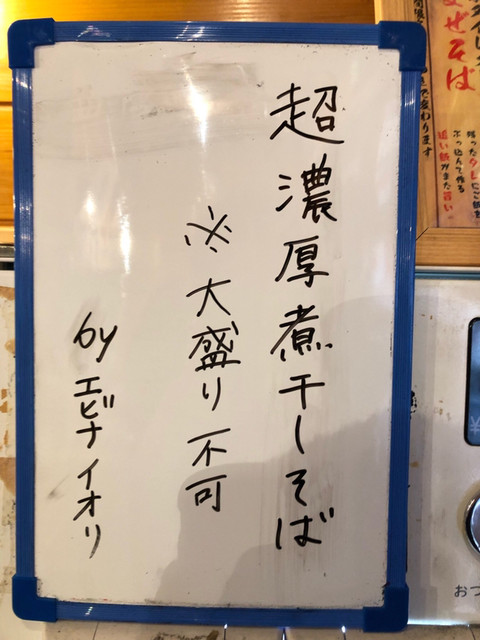 超濃厚煮干しそば
※大盛り不可
by エビナイオリ
まぜそば
変わります
残ったタレにご飯
ぶっ込んで作る
追い飯がまた旨い
おつ